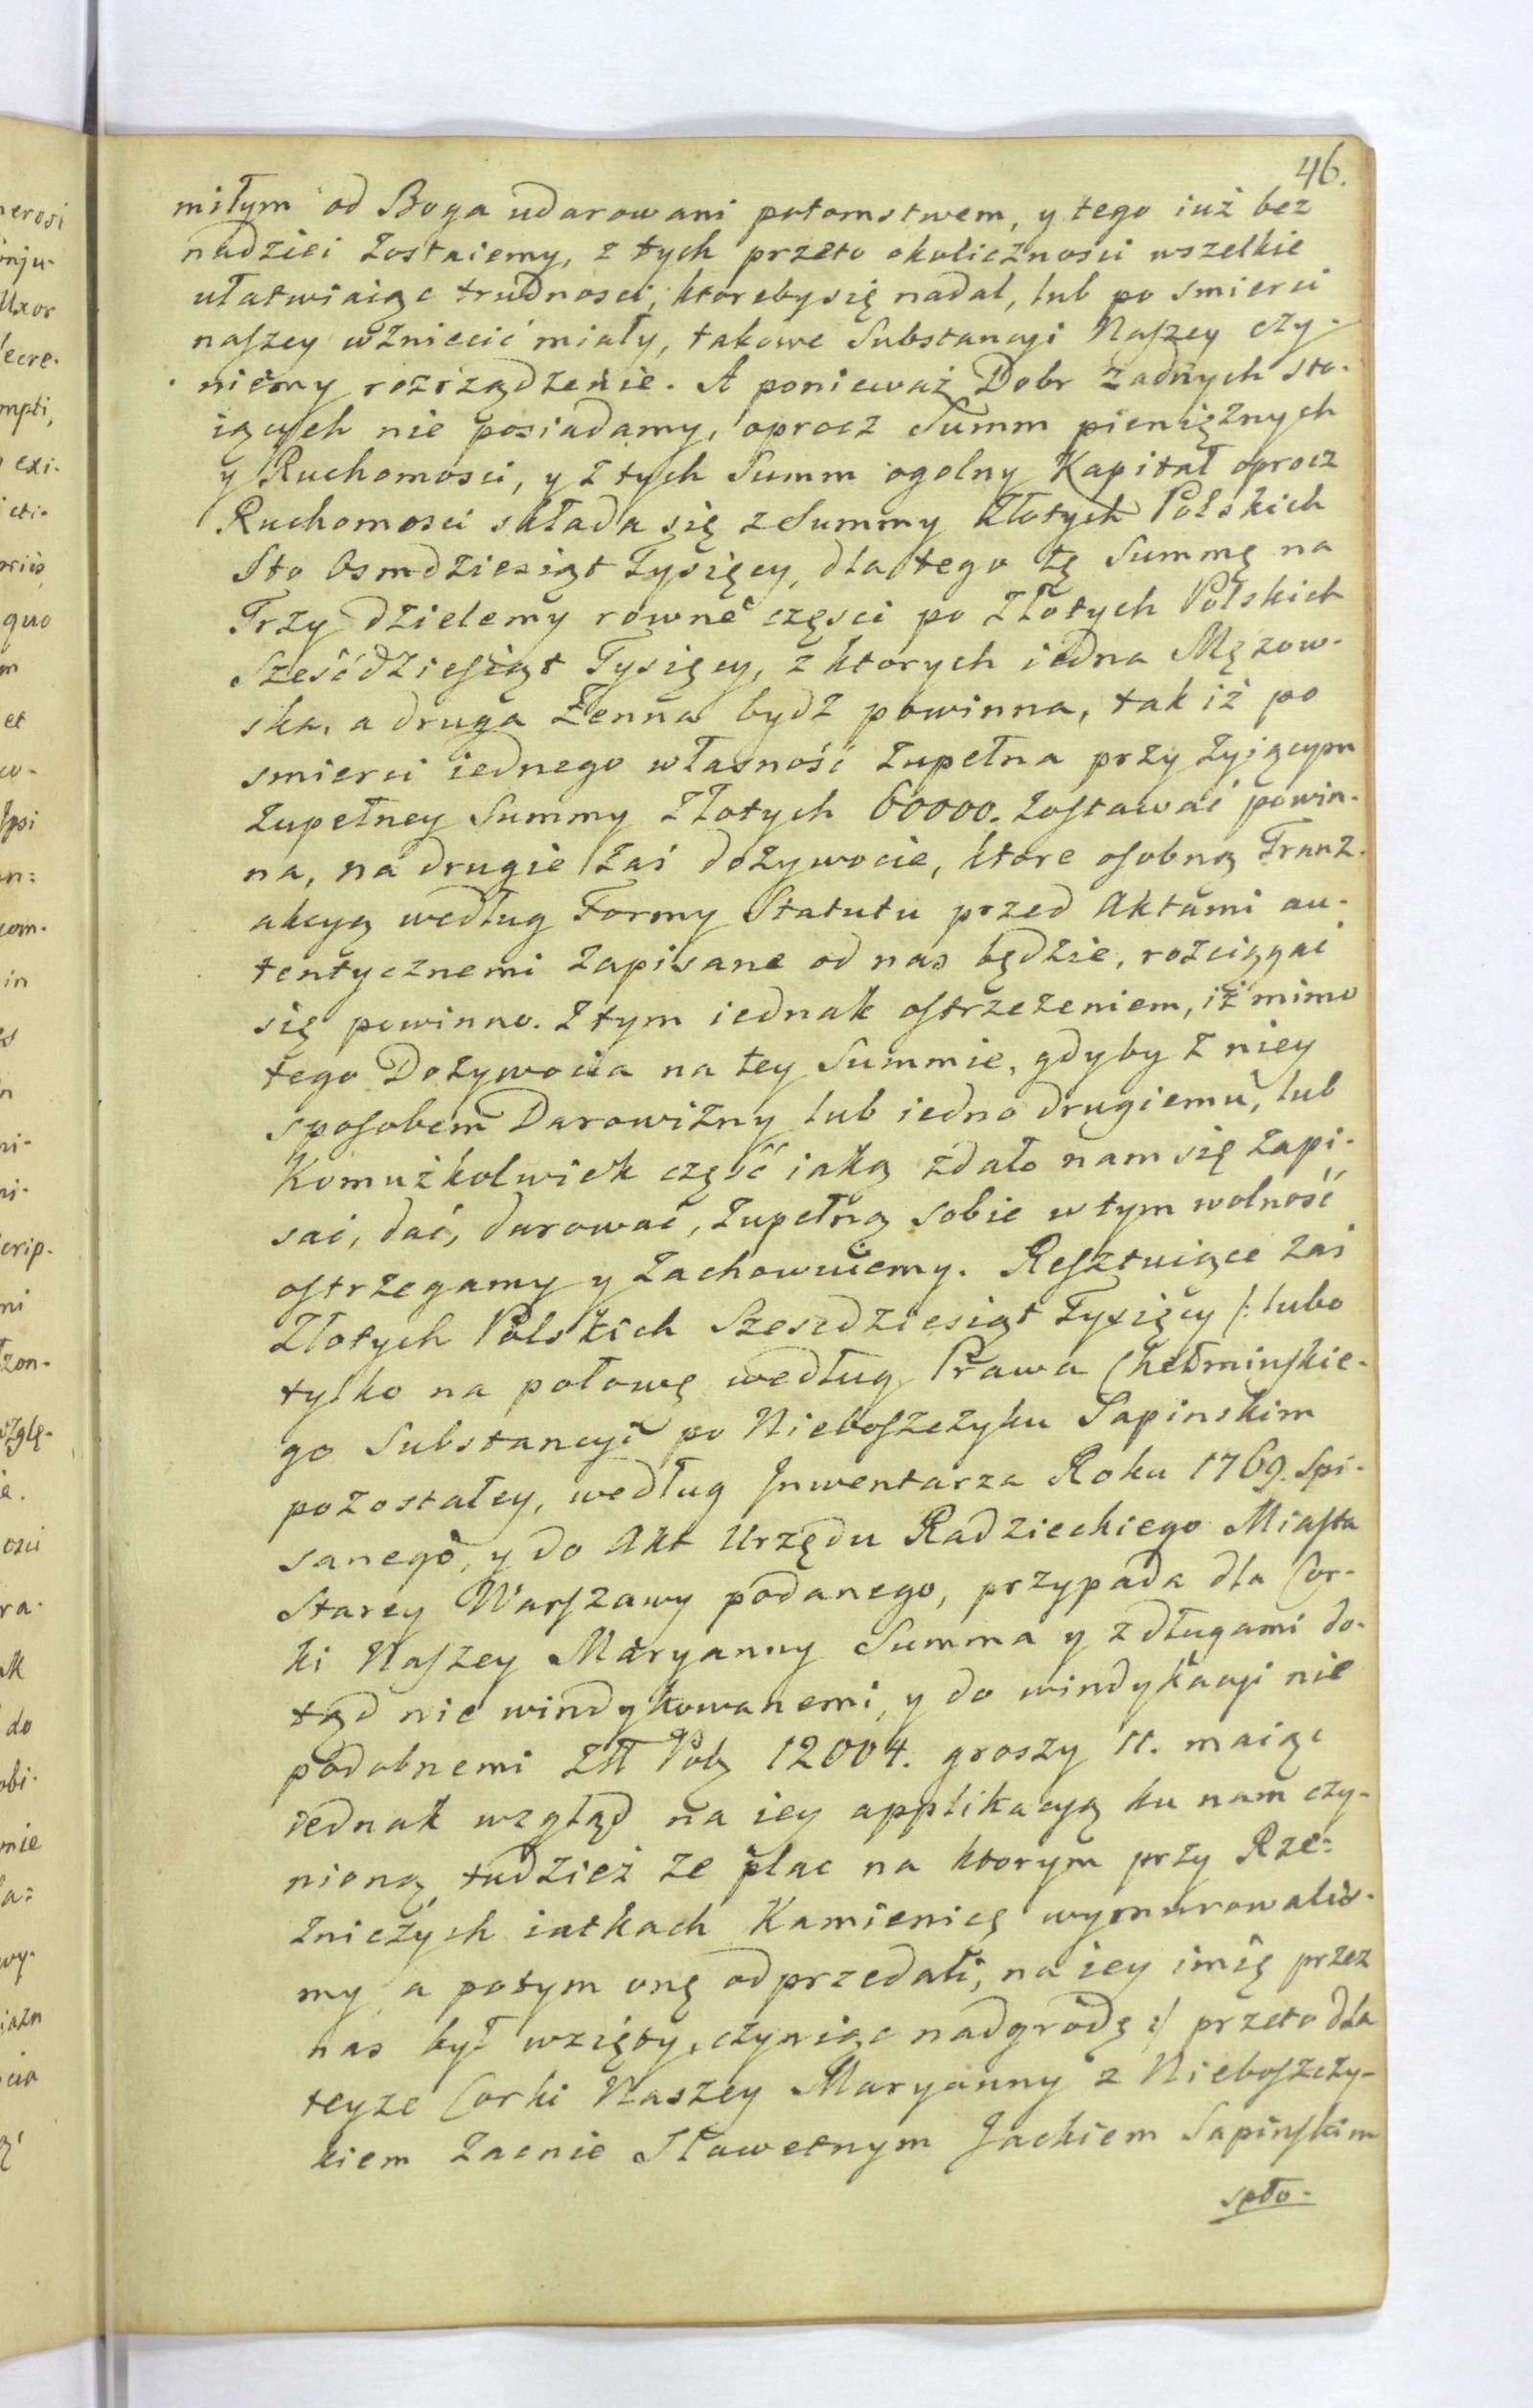 46.
miłym od Boga udarowani potomstwem, y tego iuż bez
nadziei zostaiemy, z tych przeto okoliczności wszelkie
ułatwiaiąc trudności, ktoreby się nadal, lub po smierci
naszey wzniecić miały, takowe Substancyi Naszey czy-
niemy rozrządzenie. A ponieważ Dobr żadnych sto-
iących nie posiadamy, oprocz Summ pieniężnych
y Ruchomości, y z tych Summ ogolny Kapitał oprocz
Ruchomości składa się z Summy Złotych Polskich
Sto Osmdziesiąt Tysięcy, dla tego tę Summę na
Trzy dzielemy rowne części po Złotych Polskich
Sześćdziesiąt Tysięcy, z ktorych iedna Męzow-
ska, a druga Żenna bydź powinna, tak iż po
smierci iednego własność zupełna przy żyiącym
zupełney Summy Złotych 60000. zostawać powin-
na, na drugie zaś dożywocie, ktore osobną Tranz-
akcyą według Formy Statutu przed Aktami au-
tentycznemi zapisane od nas będzie, rozciągać
się powinno. Z tym iednak ostrzeżeniem, iż mimo
tego Dożywocia na tey Summie, gdyby z niey
sposobem Darowizny lub iedno drugiemu, lub
Komużkolwiek część iaką zdało nam się zapi-
sać, dać, darować, zupełną sobie w tym wolność
ostrzegamy y zachowuiemy. Resztuiące zaś
Złotych Polskich Szesćdziesiąt Tysięcy /: lubo
tylko na połowę według Prawa Chełminskie-
go Substancyi po Nieboszczyku Sapinskim
pozostałey, według Jnwentarza Roku 1769. spi-
sanego, y do Akt Urzędu Radzieckiego Miasta
Starey Warszawy podanego, przypada dla Cor-
ki Naszey Maryanny Summa y z długami do-
tąd nie windykowanemi, y do windykacyi nie
podobnemi Złł Pols 12004. groszy 11. maiąc
iednak wzgląd na iey applikacyą ku nam czy-
nioną, tudzież że plac na ktorym przy Rze-
zniczych iatkach Kamienicę wymurowalis-
my, a potym onę odprzedali, na iey imię przez
nas był wzięty, czyniąc nadgrodę :/ przeto dla
teyże Corki Naszey Maryanny z Nieboszczy-
kiem Zacnie Sławetnym Jackiem Sapinskim
spło-